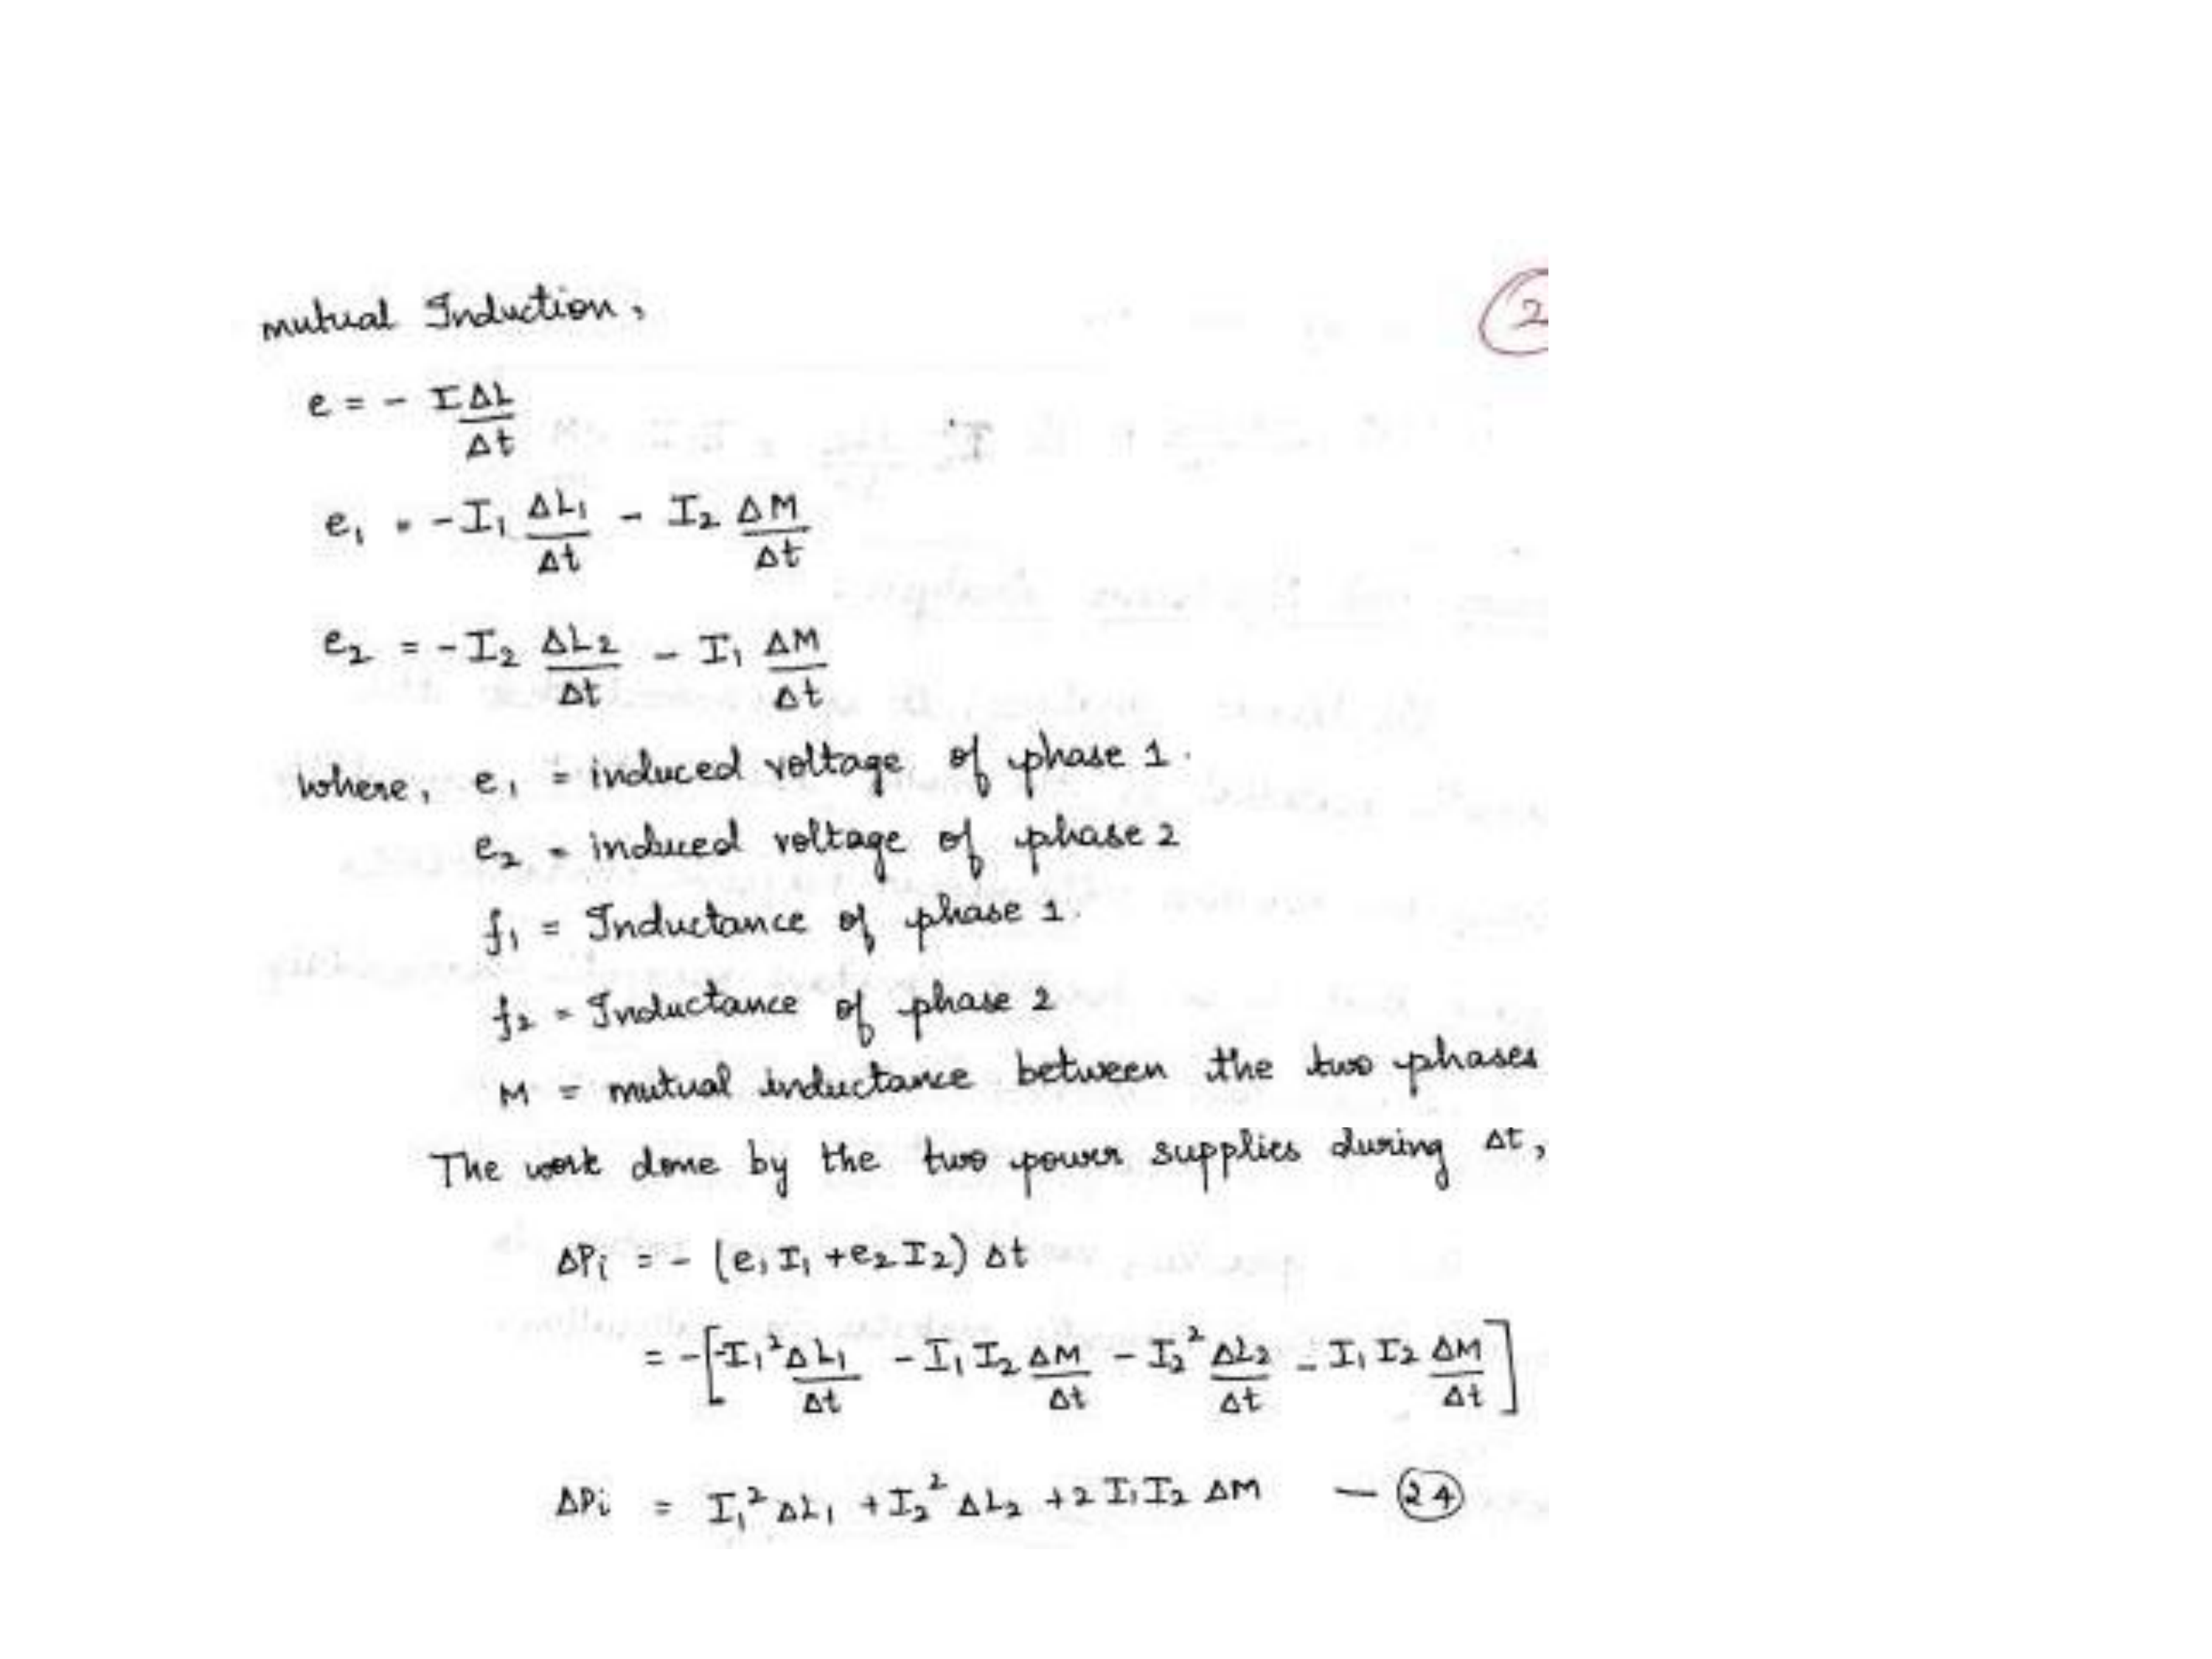 mutual Induction,
2
e = - I ΔL/Δt
e₁ = -I₁ ΔL₁/Δt - I₂ ΔM/Δt
e₂ = -I₂ ΔL₂/Δt - I₁ ΔM/Δt
where, e₁ = induced voltage of phase 1.
e₂ = induced voltage of phase 2
f₁ = Inductance of phase 1.
f₂ = Inductance of phase 2
M = mutual inductance between the two phases
The work done by the two power supplies during Δt,
ΔPi = - (e₁ I₁ + e₂ I₂) Δt
= -[-I₁² ΔL₁/Δt - I₁ I₂ ΔM/Δt - I₂² ΔL₂/Δt - I₁ I₂ ΔM/Δt]
ΔPi = I₁² ΔL₁ + I₂² ΔL₂ + 2 I₁ I₂ ΔM — 24